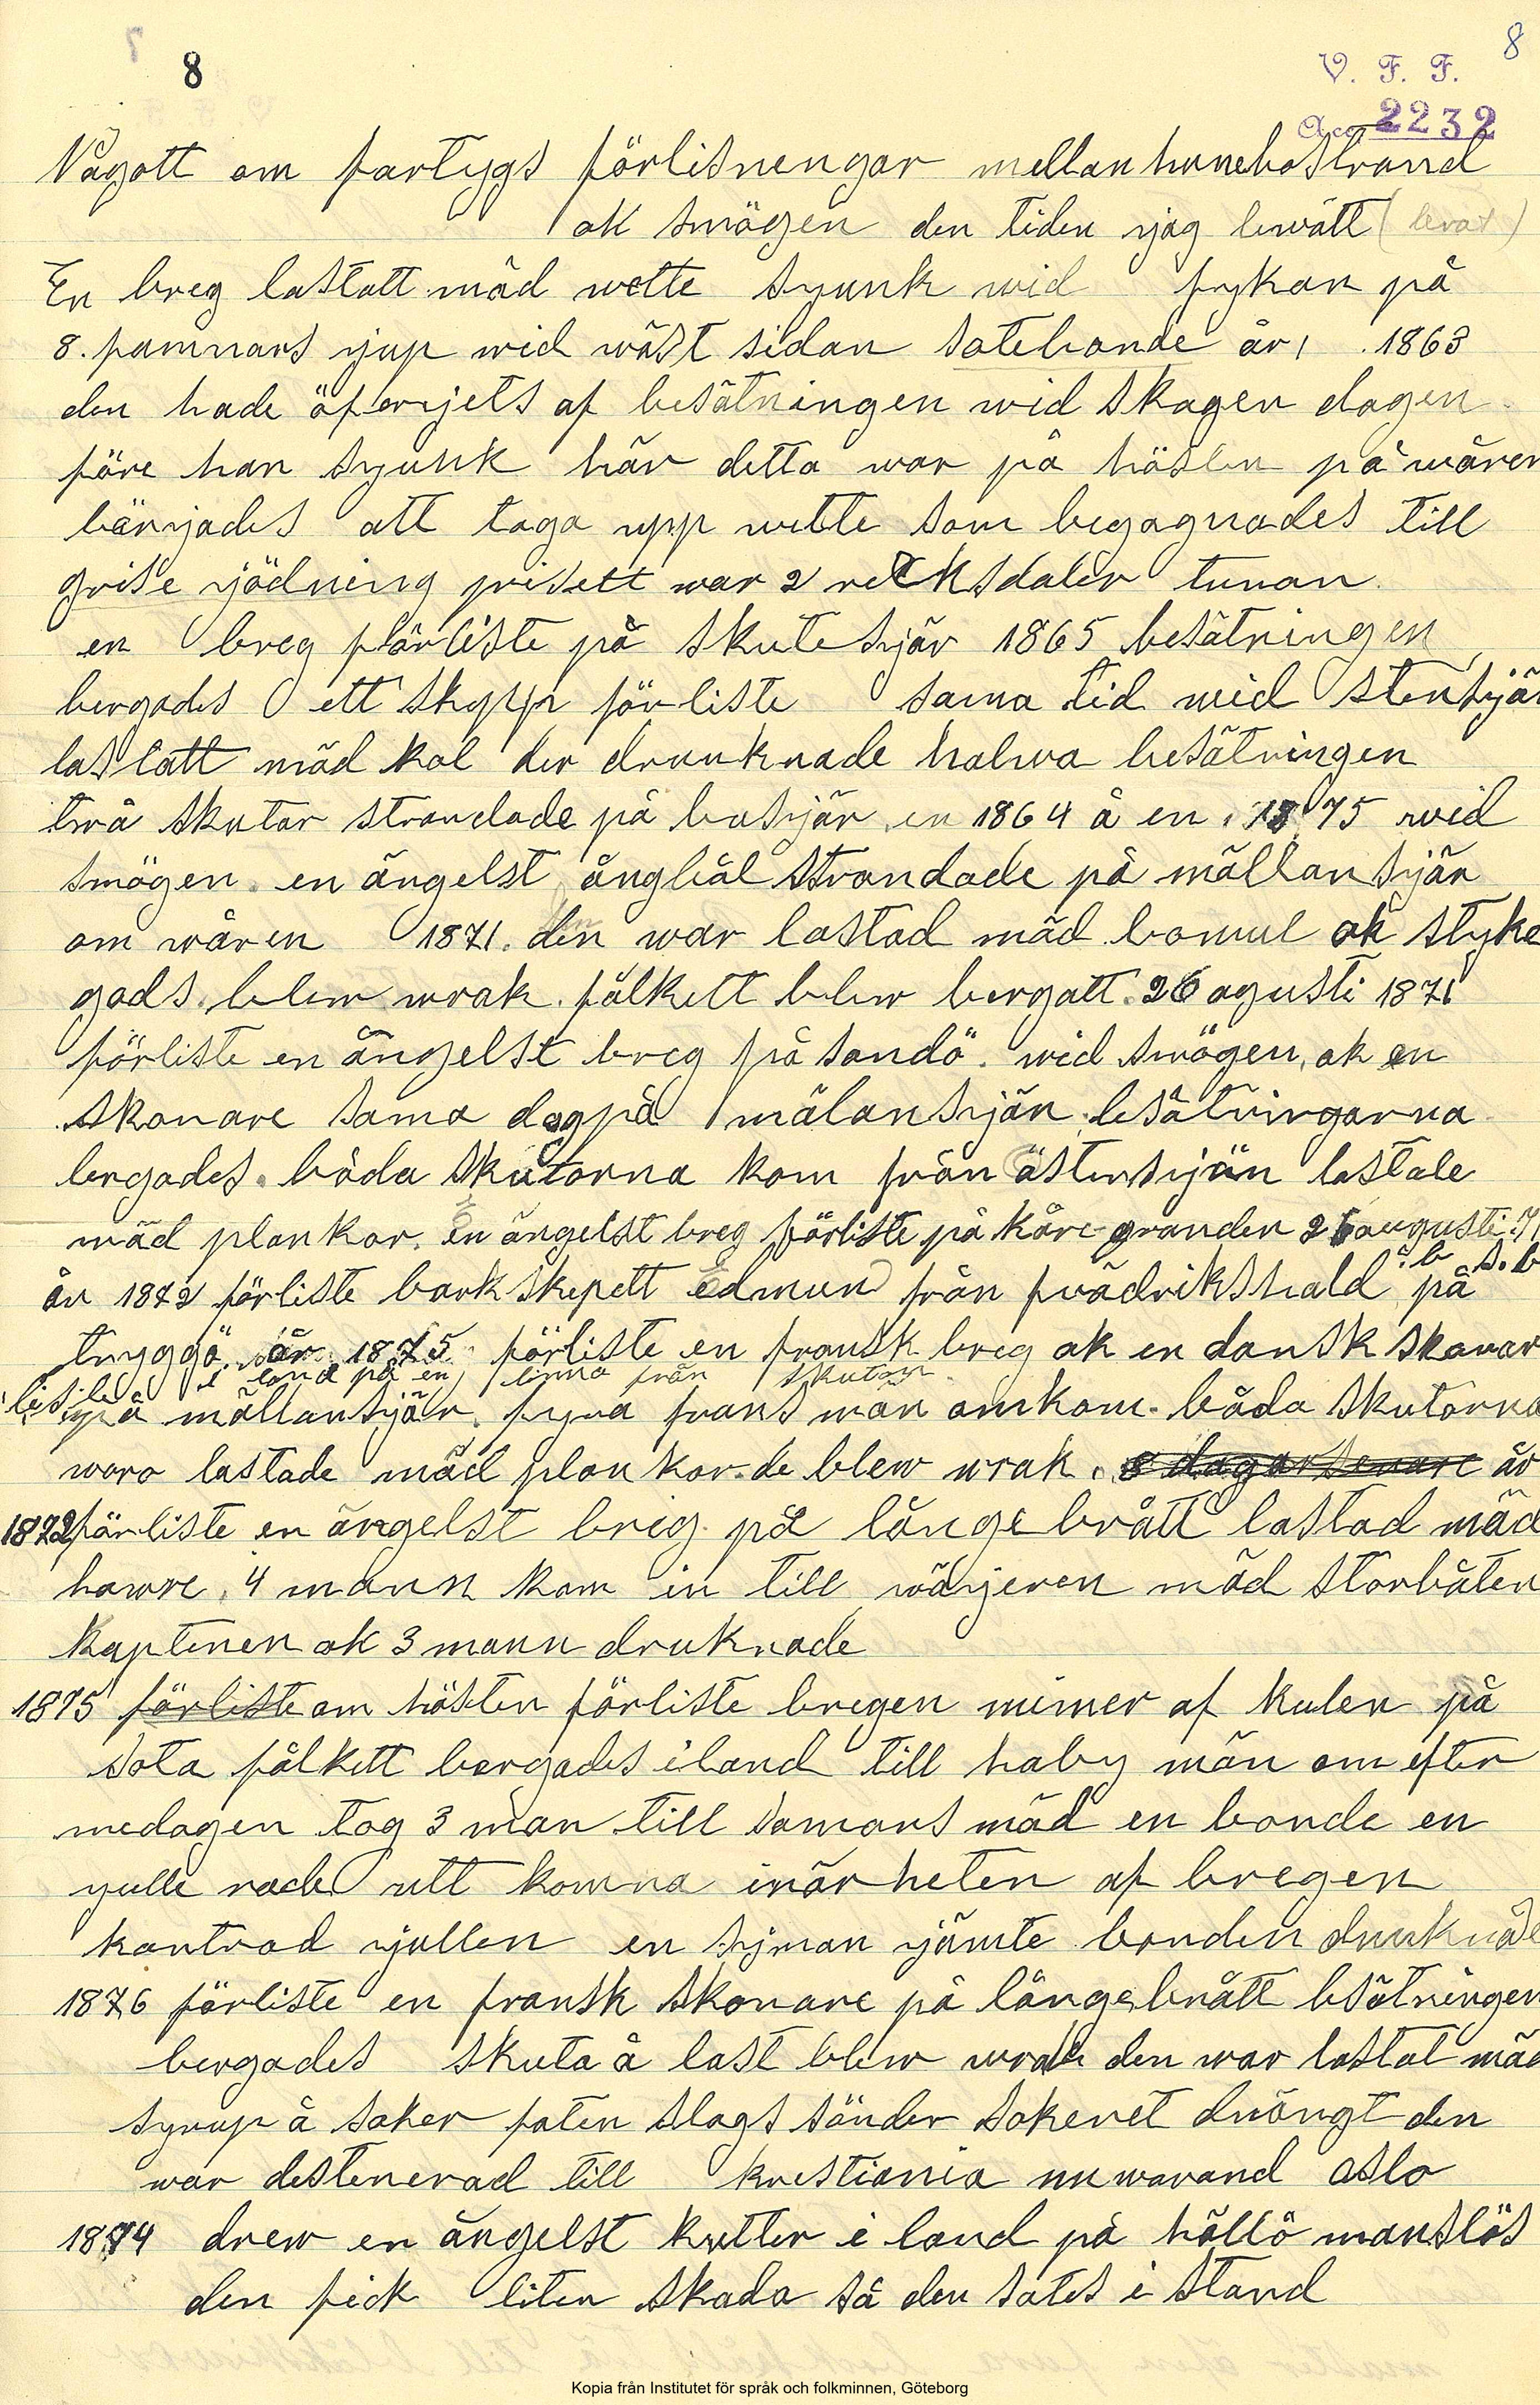 8
8
V. F. F.
Acc. 2232
Något om fartygs förlisnengar mellan hunebostrand
ok smögen den tiden jag lewatt (levat)
En breg lastatt mäd wette syunk wid fykan på
8. famnars yup wid wäst sidan sotebonde år 1863
den hade öfverjets af besätningen wid skagen dagen
före han syunk här detta war på hösten på wåren
bärjades att taga upp wette som begagnades till
grise yödning prisett war 2 recksdaler tunan
en breg förliste på skutesjär 1865 besätningen
bergades ett skypp förliste sama tid wid stensjär
lastatt mäd kol der drunknade halwa besätningen
twå skutor strandade på busjär en 1864 å en 1875 wid
smögen. en ängelst ångbåt strandade på mällansjär
om wåren 1871. den war lastad mäd bomul ok styke
gods. blew wrak. fålkett blew bergatt. 26 agusti 1871
förliste en ängelst breg på sandö. wid smögen, ok en
skonare sama dag på mälansjär. besätningarna
bergades. båda skutorna kom från östersjön lastade
mäd plankor. En ängelst breg förliste på kåregrunden 26 augusti 71
år 1872 förliste barkskepett Edmun från frädrikshald på
tryggö. år 1875 förliste en fransk breg ok en dansk skonar
i land på en linna från skutan
på mällansjär. fyra frans män omkom. båda skutorna
woro lastade mäd plankor. de blew wrak. 8 dagar senare år
1872 förliste en ängelst breg på långebrått lastad mäd
hawre. 4 mann kom in till wäjeren mäd storbåten
kaptenen ok 3 mann druknade
1875 förliste om hösten förliste bregen mimer af kulen på
sota fålkett bergades iland till haby män om efter
medagen tog 3 man till samans mäd en bonde en
yulle rode utt komna inärheten af bregen
kantrad yullen en syman yämte bonden druknade
1876 förliste en fransk skonare på långebrått besätningen
bergades skuta å last blew wrak den war lastat mäd
syrup å soker faten slogs sönder sokeret drängt den
war destenerad till krestiania nuwarand oslo
1874 drew en ängelst kutter i land på hållö manslös
den fick liten skada så den sates i stand
Kopia från Institutet för språk och folkminnen, Göteborg